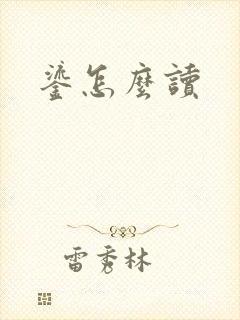 鎏怎麼讀
雷秀林